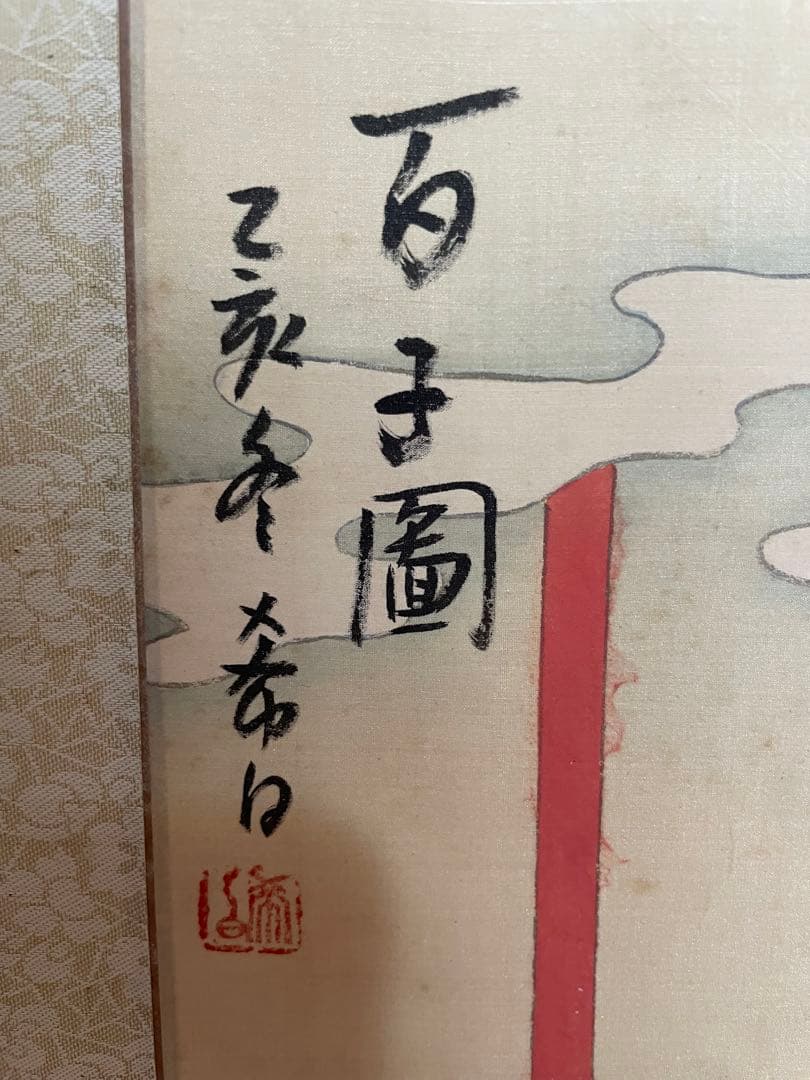 百子圖
乙亥冬 希白